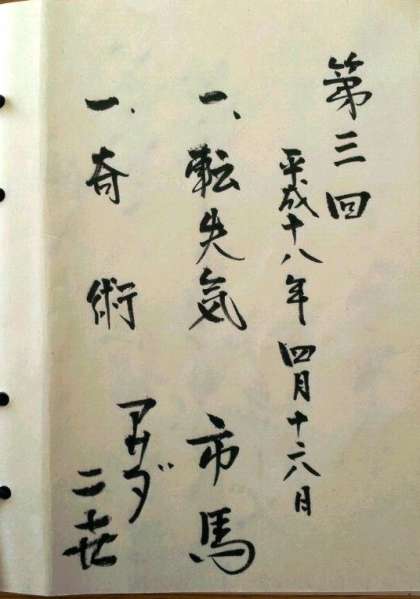 第三回
平成十八年 四月十六日
一、転失気 市馬
一、奇術 アサダ二世